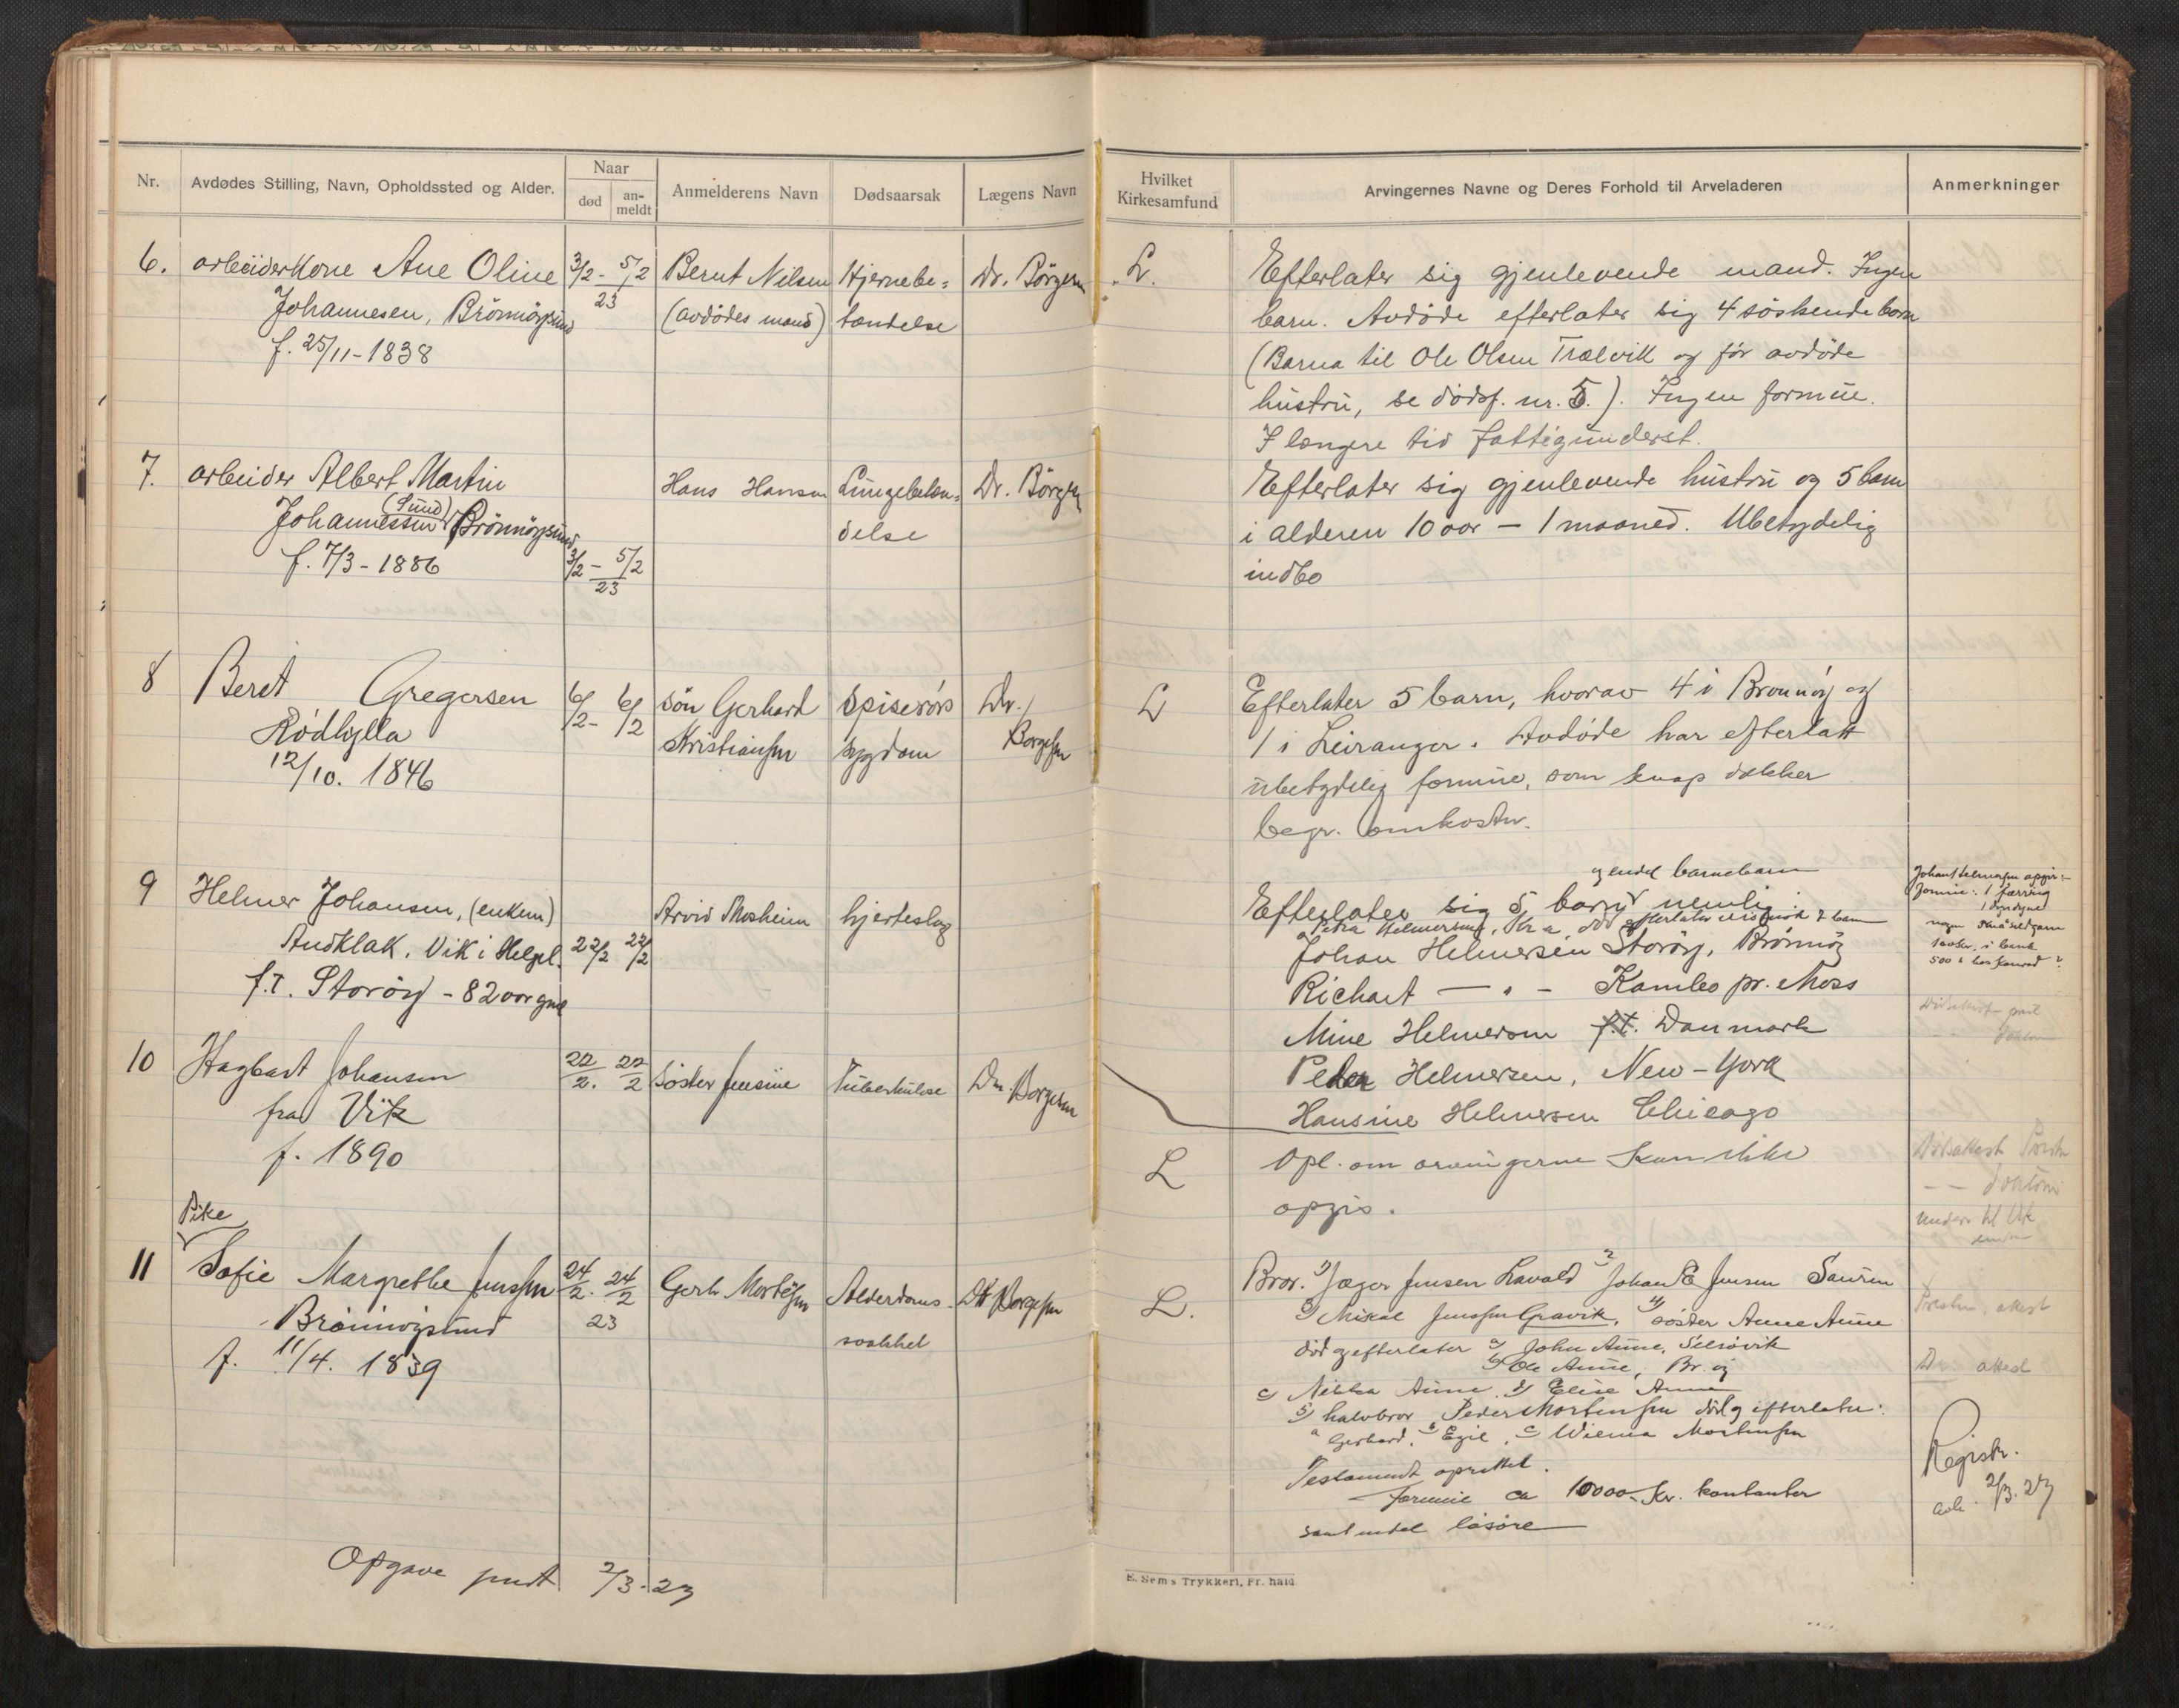 Nr.
Avdødes Stilling, Navn, Opholdssted og Alder.
Naar
død
an-
meldt
Anmelderens Navn
Dødsaarsak
Lægens Navn
Hvilket
Kirkesamfund
Arvingernes Navne og Deres Forhold til Arveladeren
Anmerkninger
6. arbeiderkone Ane Oline
Johannesen, Brönnöysund
f. 25/11-1838
3/2 - 5/2
23
Bernt Nilsen
(avdödes mand)
Hjernebe=
tændelse
Dr. Börgesen
L.
Efterlater sig gjenlevende mand. Ingen
barn. Avdöde efterlater sig 4 söskendebarn
(Barna til Ole Olsen Trælvik og för avdöde
hustru, se dödsf. nr. 5.). Ingen formue.
I længere tid fattigunderst.
7. arbeider Albert Martin
(Sund)
Johannessen Brönnöysund
f. 7/3-1886
3/2 - 5/2
23
Hans Hansen
Lungebetæn=
delse
Dr. Börgesen
Efterlater sig gjenlevende hustru og 5 barn
i alderen 10 aar - 1 maaned. Ubetydelig
indbo
8 Beret Gregersen
Rödhylla
12/10. 1846
6/2 - 6/2
sön Gerhard
Kristiansen
Spiserörs
sygdom
Dr.
Borgesen
L
Efterlater 5 barn, hvorav 4 i Brönnöy og
1 i Leiranger. Avdöde har efterlatt
ubetydelig formue, som knap dækker
begr. omkostn.
9 Helmer Johansen, (enkem)
Andklak. Vik i Helgel.
f.t. Storöy - 82 aar gml
22/2 22/2
Arvid Mosheim
hjerteslag
og endel barnebarn
Efterlater sig 5 barn nemlig:
Petra Helmersen, Kr a, död efterlater
Johan Helmersen Storöy, Brönnöy
Richart - " - Kambo pr. Moss
Mine Helmersen f.t. Danmark
Peder Helmersen, New-York
Hansine Helmersen Chicago
Johan Helmersen opgir:
Formue: 1 færring
10 Hagbart Johansen
fra Vik
f. 1890
22/2. 22/2
Söster Jensine
Tuberkulose
Dr. Borgesen
L
Opl. om arvingerne kan ikke
opgis.
Dödsattest
Pike
11 Sofie Margrethe Jenssen
Brönnöysund
f. 11/4. 1839
24/2. 24/2
23
Gerh. Mortesen
Alderdoms-
svakhet
Dr Borgesen
L.
Bror. 1) Jæger Jensen Lavald 2) Johan E Jensen Sauren
3) Mikal Jenssen Gravik, 4) söster Anne Aune
död og efterlater a) John Aune, Selsövik
b) Ole Aune, Br. öy
c) Nikka Aune d) Elise Aune
5) halvbror Peder Mortensen död og efterlater:
a Gerhard, b Egil, c Wilma Mortensen
Testament oprettet.
formue ca 10000 Kr. kontanter
samt endel lösöre
attest
Registr.
avh. 2/3. 23
Opgave sendt 2/3. 23
E. Sem's Trykkeri, Fr.hald